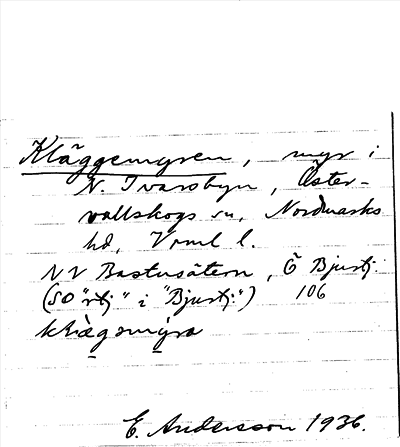 Kläggemyren, myr i
N. Ivarsbyn, Öster-
vallskogs sn, Nordmarks
hd, Vrml l.
NV Bastusätern, Ö Bjurtj.
(SO "rtj" i "Bjurtj.") 106
E. Andersson 1936.